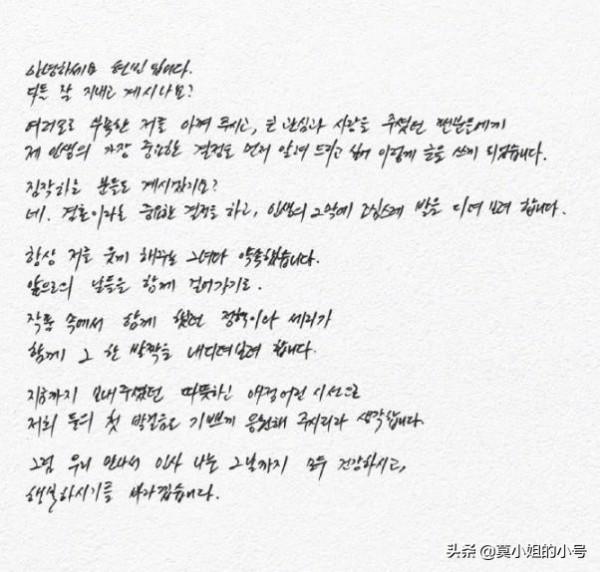 안녕하세요 현빈입니다.
다들 잘 지내고 계시나요?
여러모로 부족한 저를 아껴 주시고, 큰 관심과 사랑을 주셨던 팬분들에게
제 인생의 가장 중요한 결정을 먼저 알려 드리고 싶어 이렇게 글을 쓰게 되었습니다.
짐작하실 분들도 계시겠지요?
네. 결혼이라는 중요한 결정을 하고, 인생의 2막에 조심스레 발을 디뎌 보려 합니다.
항상 저를 웃게 해주는 그녀와 약속했습니다.
앞으로의 날들을 함께 걸어가기로.
작품 속에서 함께 했던 정혁이와 세리가
함께 그 한 발짝을 내디뎌보려 합니다.
지금까지 보내주셨던 따뜻하신 애정어린 시선으로
저희 둘의 첫 발걸음도 기쁘게 응원해 주시리라 생각합니다.
그럼 우리 만나서 인사 나눌 그날까지 모두 건강하시고,
행복하시기를 바라겠습니다.
头条 @莫小姐的小号